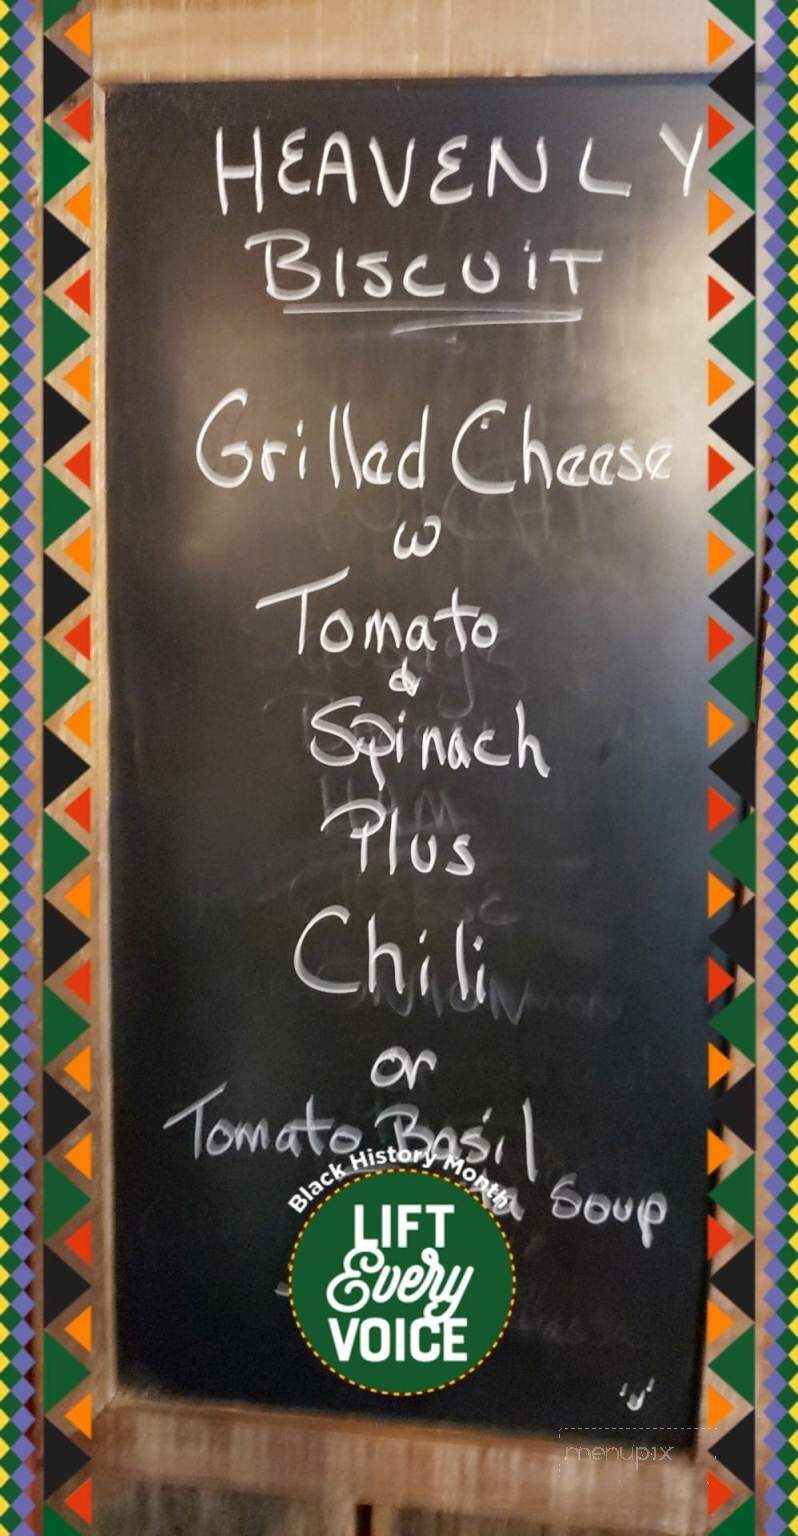 HEAVENLY
BISCUIT
Grilled Cheese
w
Tomato
&
Spinach
Plus
Chili
or
Tomato Basil
Soup
Black History Month
LIFT
Every
VOICE
menupix